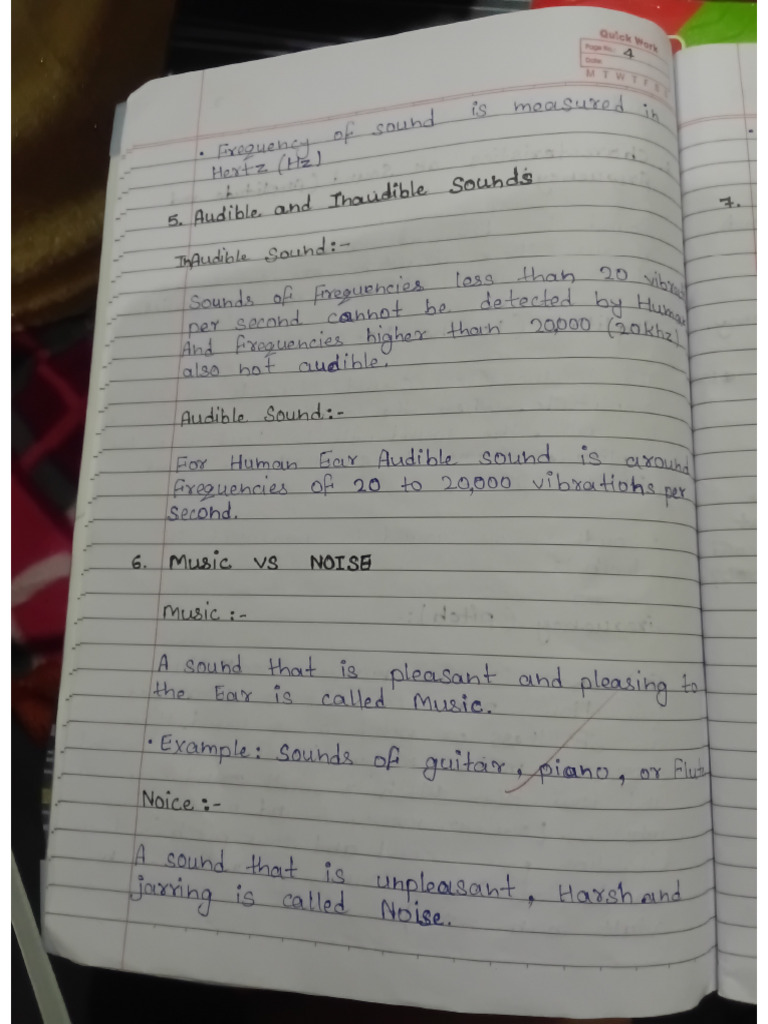 Quick Work
Page No.: 4
Date:
M T W T F S S
• Frequency of sound is measured in
Hertz (Hz)
5. Audible and Inaudible Sounds
InAudible Sound:-
Sounds of Frequencies less than 20
per second cannot be detected by
And frequencies higher than 20,000 (20khz)
also not audible.
Audible Sound:-
For Human Ear Audible sound is around
frequencies of 20 to 20,000 vibrations per
second.
6. Music vs NOISE
Music :-
A sound that is pleasant and pleasing to
the Ear is called Music.
• Example: Sounds of guitar, piano, or
Noice :-
A sound that is unpleasant, Harsh and
jarring is called Noise.
7.